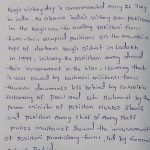 Kargil Victory day is commemorated every 26 July
in India, to observe India's victory over pakistan
in the Kargil war. to ousting pakistani forces
from their occupied positions on the mountain
top of Northern Kargil District in Ladakh
in 1999, initially the pakistani army denied
their involvement in the war, claiming that
it was caused by kashmiri militants forces
However documents left behind by casualties
testimony of POWs and later statement by the
prime minister of pakistan Nawaz Sharif
and pakistan army chief of army staff
Pervez Musharraf showed the involvement
of pakistani paramilitary forces, led by General